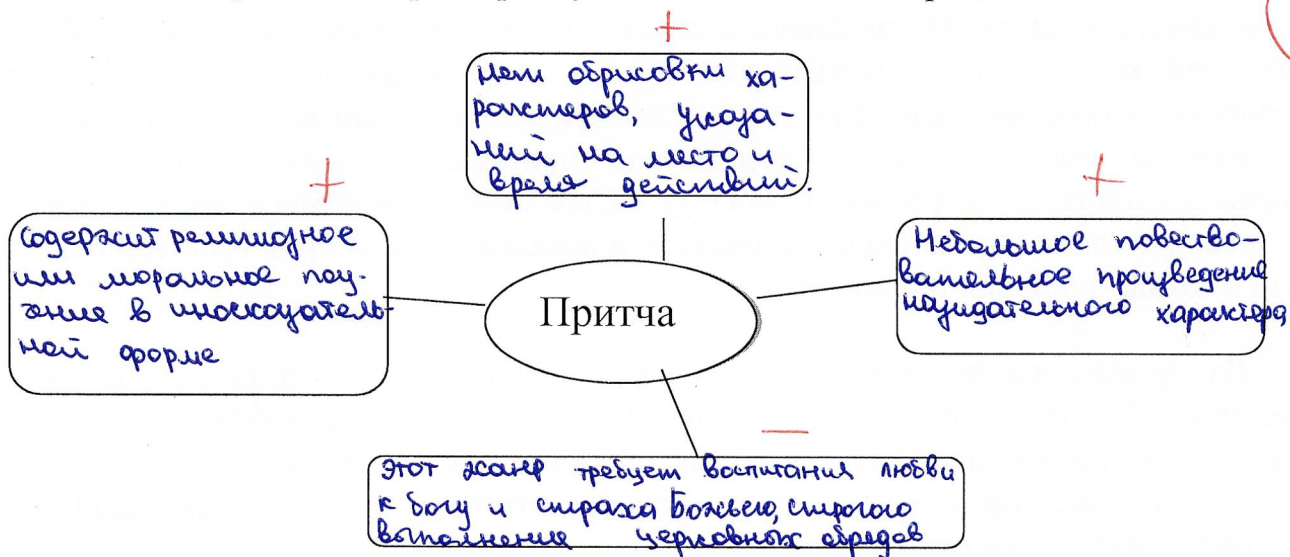 +
нет обрисовки ха-
рактеров, указа-
ний на место и
время действий.
+
содержит религиозное
или моральное поу-
чение в иносказатель-
ной форме
+
Небольшое повество-
вательное произведение
назидательного характера
Притча
—
этот жанр требует воспитания любви
к богу и страха Божьего, строгого
выполнения церковных обрядов